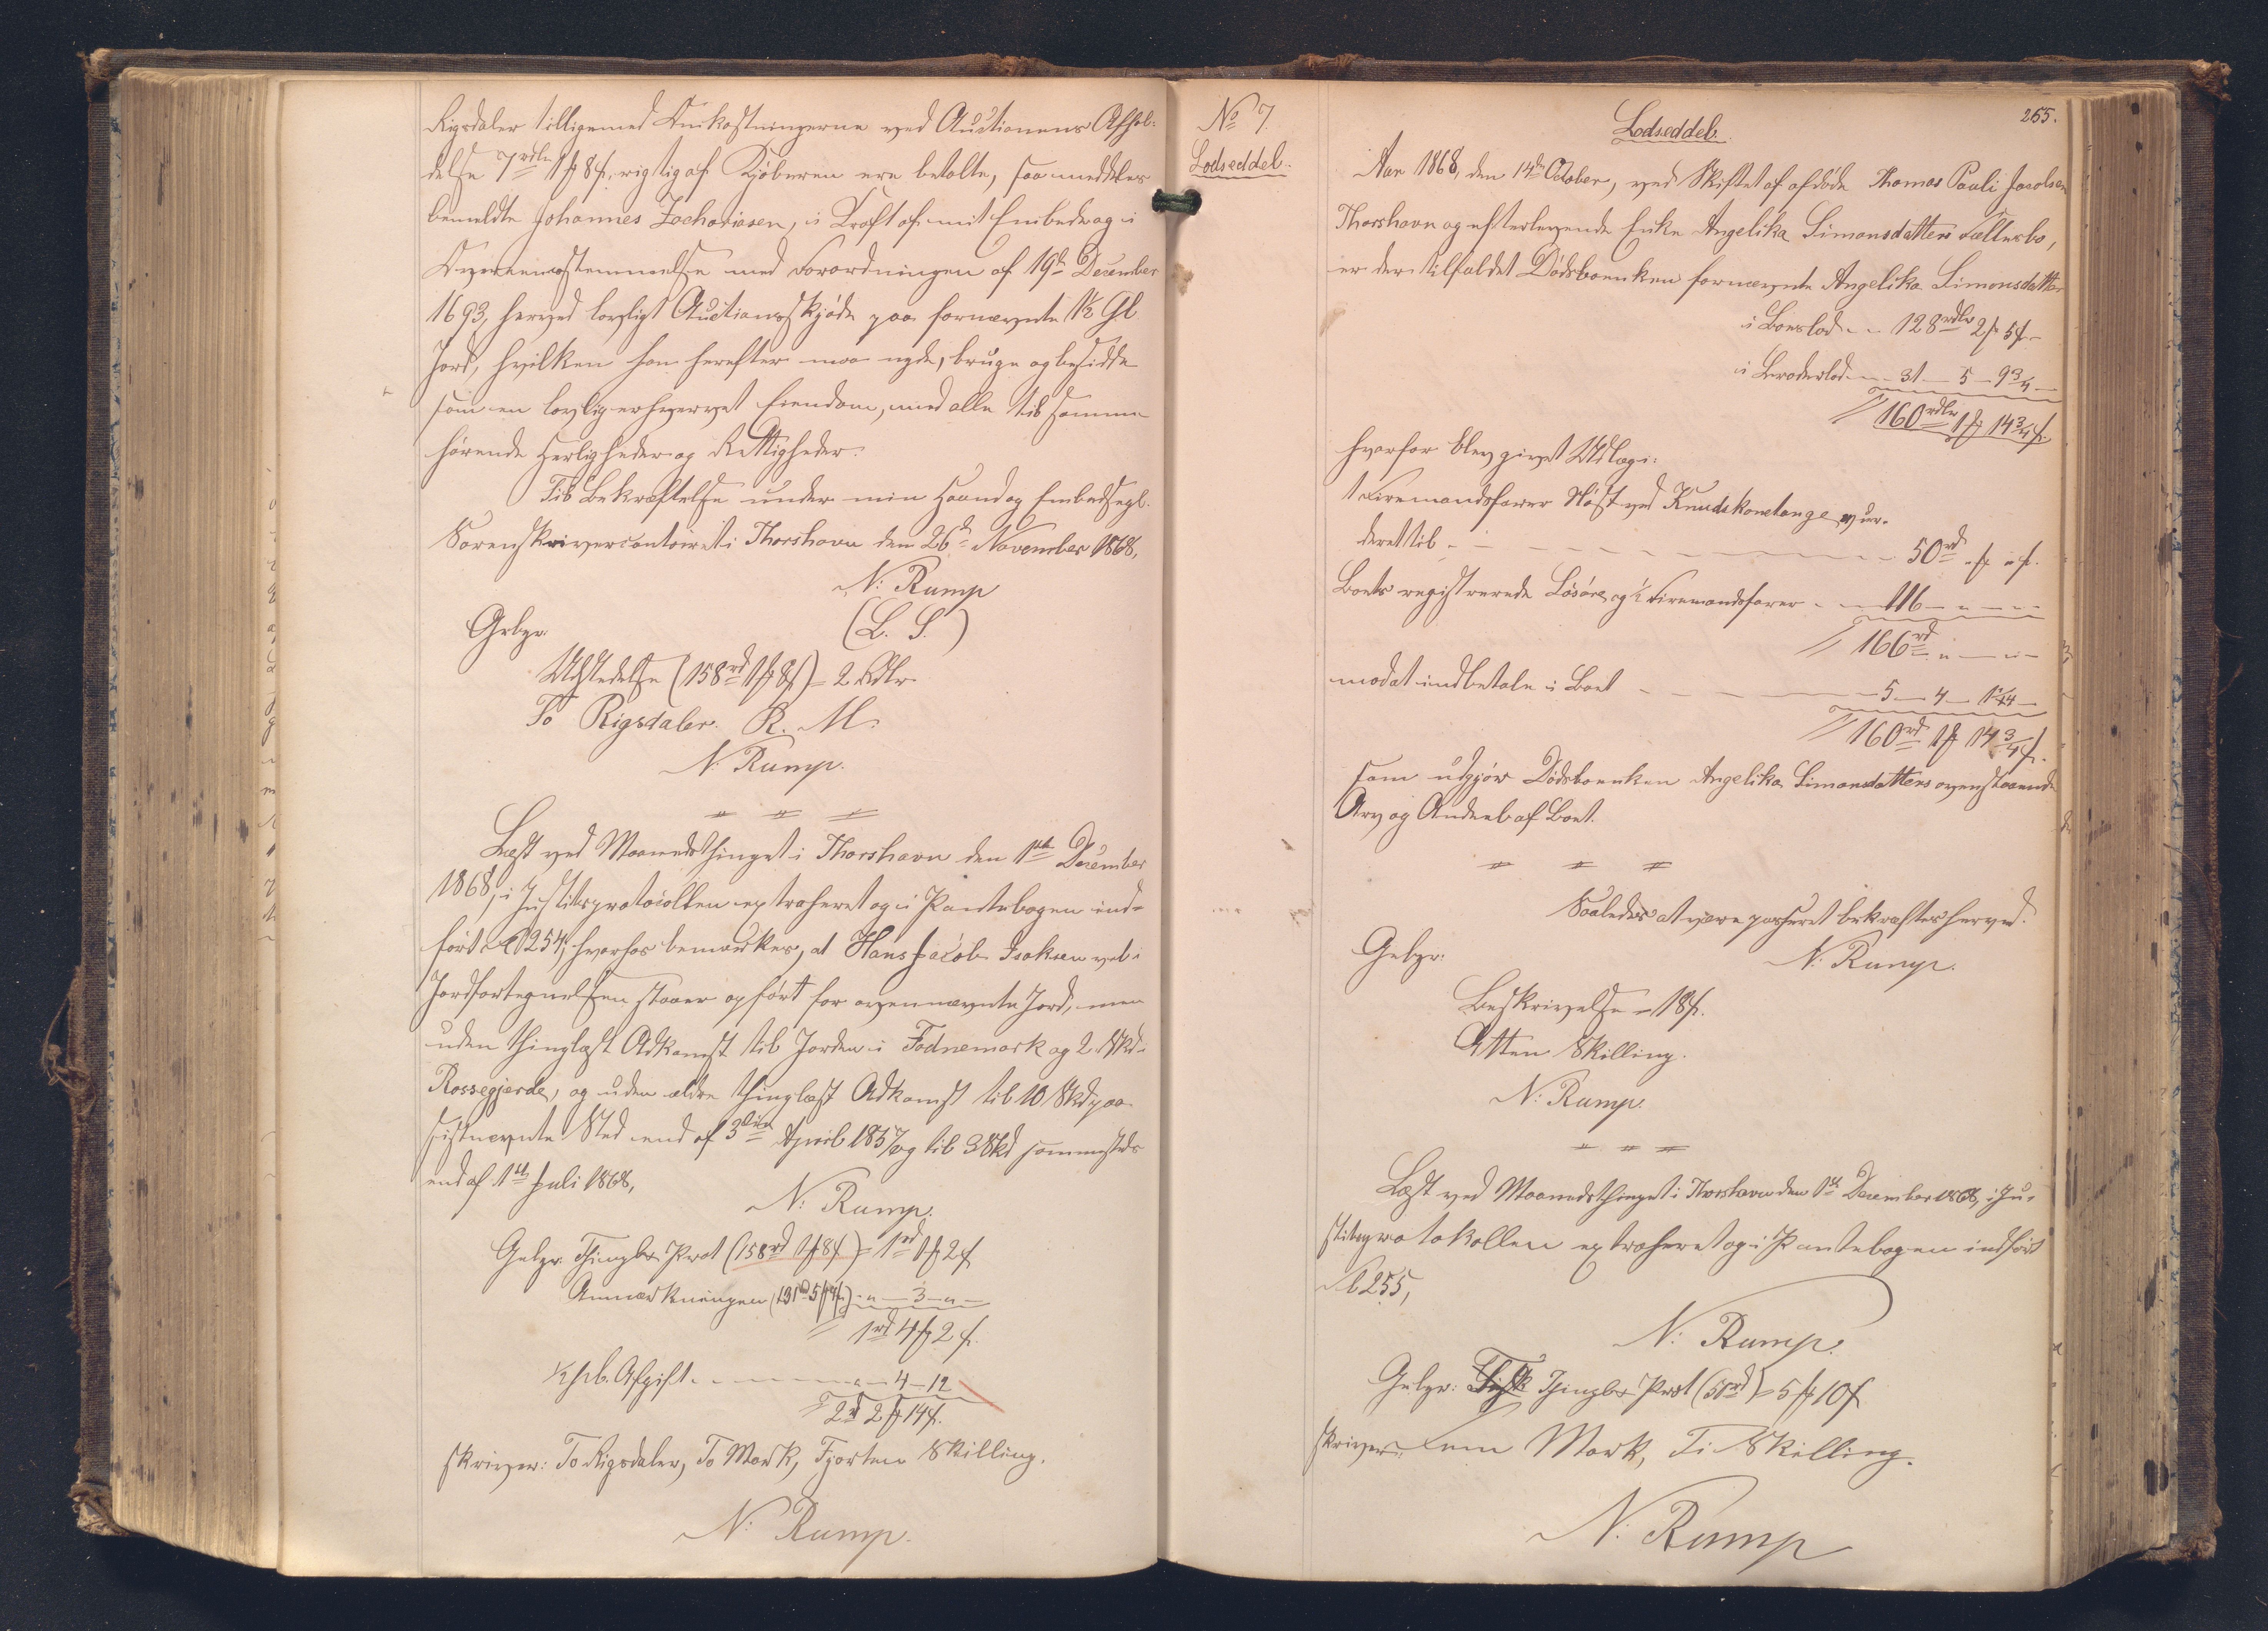 Rigsdaler tilligemed Omkostningerne ved Auctionens Afhol-
delse 7 rdlr 1 ℔ 8 ſ, rigtig af Kjöberen ere betalte, saa meddeles
bemeldte Johannes Zachariasen, i Kraft af mit Embede og i
Overeensstemmelse med Forordningen af 19de December
1693, herved lovligt Auctionsskjöde paa fornævnte 1½ Gl
Jord, hvilken han herefter maa nyde, bruge og besidde
som en lovlig erhvervet Eiendom, med alle til samme
hörende Herligheder og Rettigheder.
Til Bekræftelse under min Haand og Embedssegl.
Sorenskrivercontoiret i Thorshavn den 26de November 1868,
N. Rump
(L. S.)
Gebyr.
Udstedelse (158 rd 1 ℔ 8 ſ) = 2 Rdlr
To Rigsdaler R. M.
N. Rump.
Læst ved Maanedsthinget i Thorshavn den 1ste December
1868, i Justitsprotocollen extraheret og i Pantebogen ind-
fört Fol 254, hvorhos bemærkes, at Hans Jacob Isaksen vel i
Jordfortegnelsen staaer opfört for ovennævnte Jord, men
uden thinglæst Adkomst til Jorden i Fodnemark og 2 Skd.
Rossegjerde, og uden ældre thinglæst Adkomst til 10 Skd paa
sistnævnte Sted end af 3die April 1857 og til 3 Skd sammesteds
end af 1ste Juli 1868,
N. Rump.
Gebyr Thingl. Prot (158 rd 1 ℔ 8 ſ) = 1 rd 1 ℔ 2 ſ
Anmærkningen - " - 3 - " -
1 rd 4 ℔ 2 ſ.
Afgift - " - 4 - 12
2 rd 2 ℔ 14 ſ.
skriver: To Rigsdaler, To Mark, Fjorten Skilling.
N. Rump.
No 7.
Lodseddel.
255.
Lodseddel.
Aar 1868, den 14de October, ved Skiftet af afdöde Thomas Pauli Jacobsen
Thorshavn og efterlevende Enke Angelika Simonsdatters Fællesbo,
er der tilfaldet Dödsboenken fornævnte Angelika Simonsdatter
i Boeslod - - 128 rdlr 2 ℔ 5 ſ -
i Broderlod - - 31 - 5 - 9¾ -
160 rdlr 1 ℔ 14¾ ſ
hvorfor blev givet Udlæg i:
1 Firemandsfarer Nöst ved Knudskonetange, vur-
deret til - - - 50 rd " ℔ " ſ.
Boets registrerede Lösöre og ½ Firemandsfarer - - 116 - " - " -
166 rd " - " -
mod at indbetale i Boet - - - 5 - 4 - 1¼ -
160 rd 1 ℔ 14¾ ſ.
som udgjör Dödsboenken Angelika Simonsdatters ovenstaaende
Arv og Andeel af Boet.
Saaledes at være passeret bekræftes herved.
N. Rump.
Gebyr:
Beskrivelse = 18 ſ.
Atten Skilling.
N. Rump.
Læst ved Maanedsthinget i Thorshavn den 1ste December 1868, i Ju-
stitsprotokollen extraheret og i Pantebogen indfört
Fol 255,
N. Rump.
Gebyr: Thingl. Prot (50 rd) = 5 ℔ 10 ſ
skriver: Fem Mark, Ti Skilling.
N. Rump